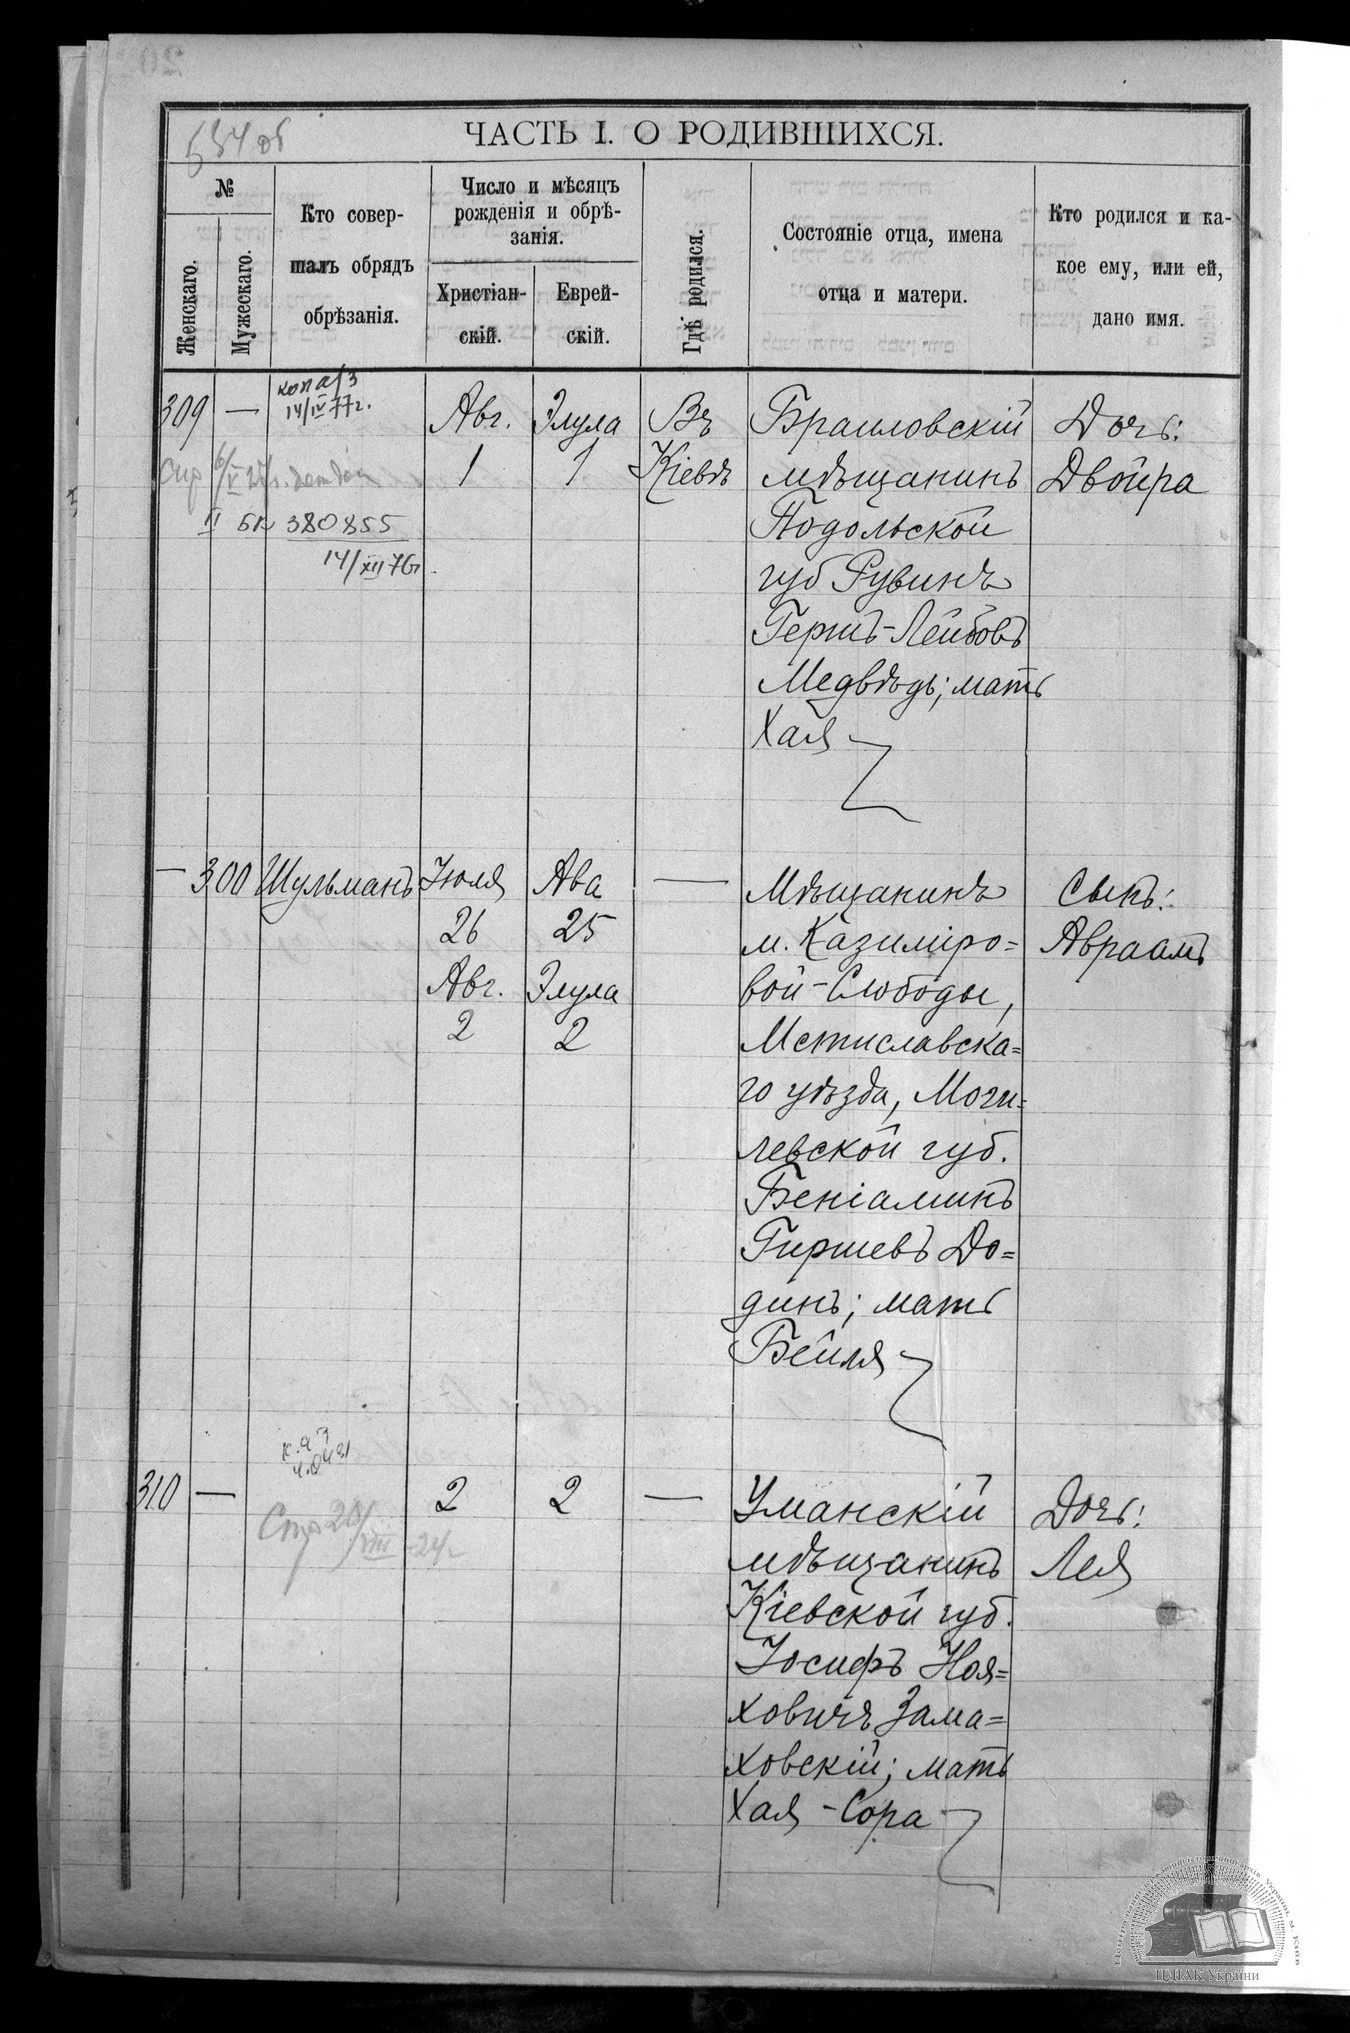 534 об
ЧАСТЬ I. О РОДИВШИХСЯ.
№
Женскаго.
Мужескаго.
Кто совер-
шалъ обрядъ
обрѣзанія.
Число и мѣсяцъ
рожденія и обрѣ-
занія.
Христіан-
скій.
Еврей-
скій.
Гдѣ родился.
Состояніе отца, имена
отца и матери.
Кто родился и ка-
кое ему, или ей,
дано имя.
309 —
14/IV 77г.
II БК 380855
14/XII 76г.
Авг.
1
Элула
1
Въ
Кіевѣ
Браиловскій
мѣщанинъ
Подольской
губ Рувинъ
Гершъ-Лейбовъ
Медвѣдь; мать
Хая
Дочь:
Двойра
— 300 Шульманъ
Іюля
26
Авг.
2
Ава
25
Элула
2
—
Мѣщанинъ
м. Казиміро=
вой-Слободы,
Мстиславска=
го уѣзда, Моги=
левской губ.
Беніаминъ
Гиршевъ До=
динъ; мать
Бейля
Сынъ:
Авраамъ
310 —
2
2
—
Уманскій
мѣщанинъ
Кіевской губ.
Іосифъ Ноя=
ховичъ Зама=
ховскій; мать
Хая-Сора
Дочь:
Лея
ЦДІАК України